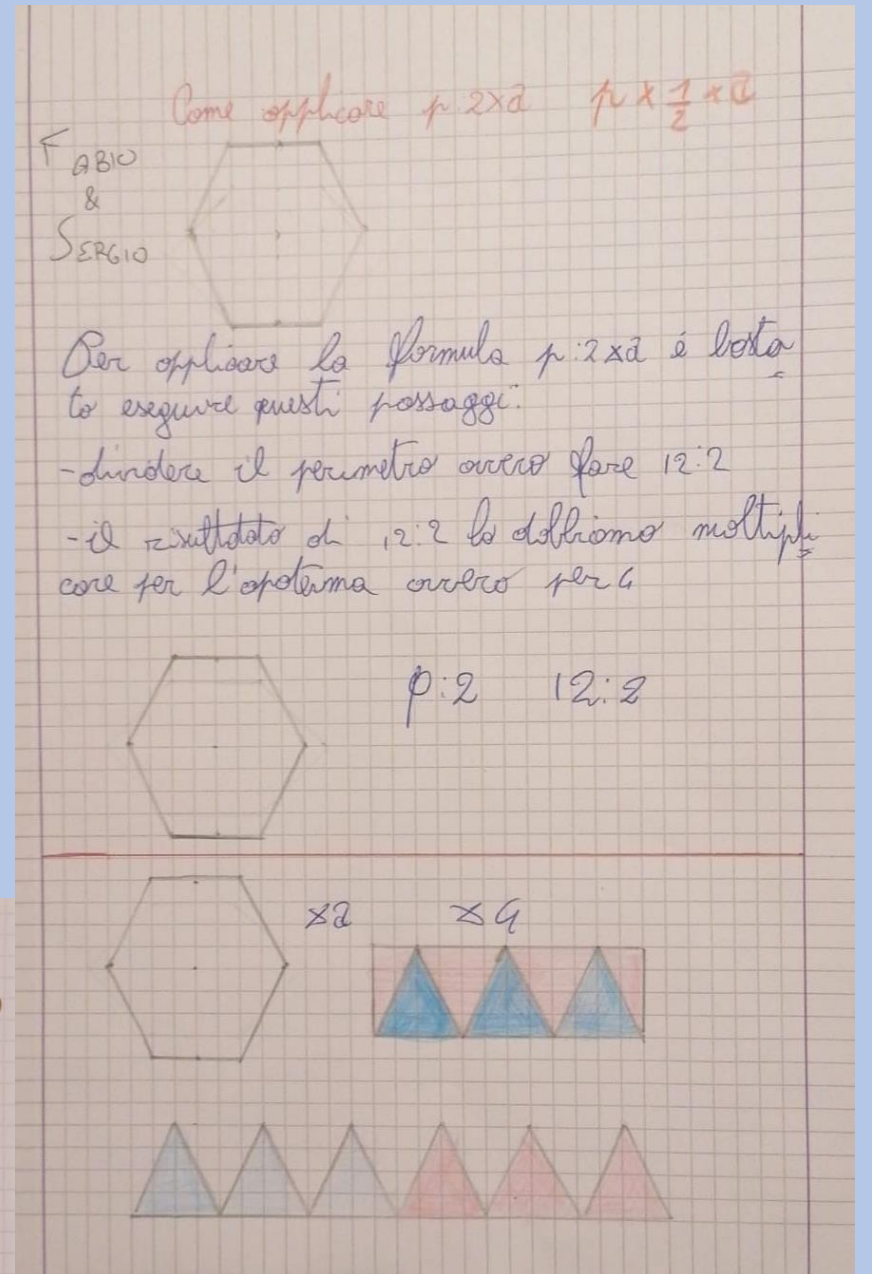 Come applicare p:2×a p × 1/2 × a
FABIO
&
SERGIO
Per applicare la formula p:2×a è basta
to eseguire questi passaggi:
-dividere il perimetro ovvero fare 12:2
-il risultdato di 12:2 lo dobbiamo moltipli
care per l'apotema ovvero per 4
p:2 12:2
×a ×4